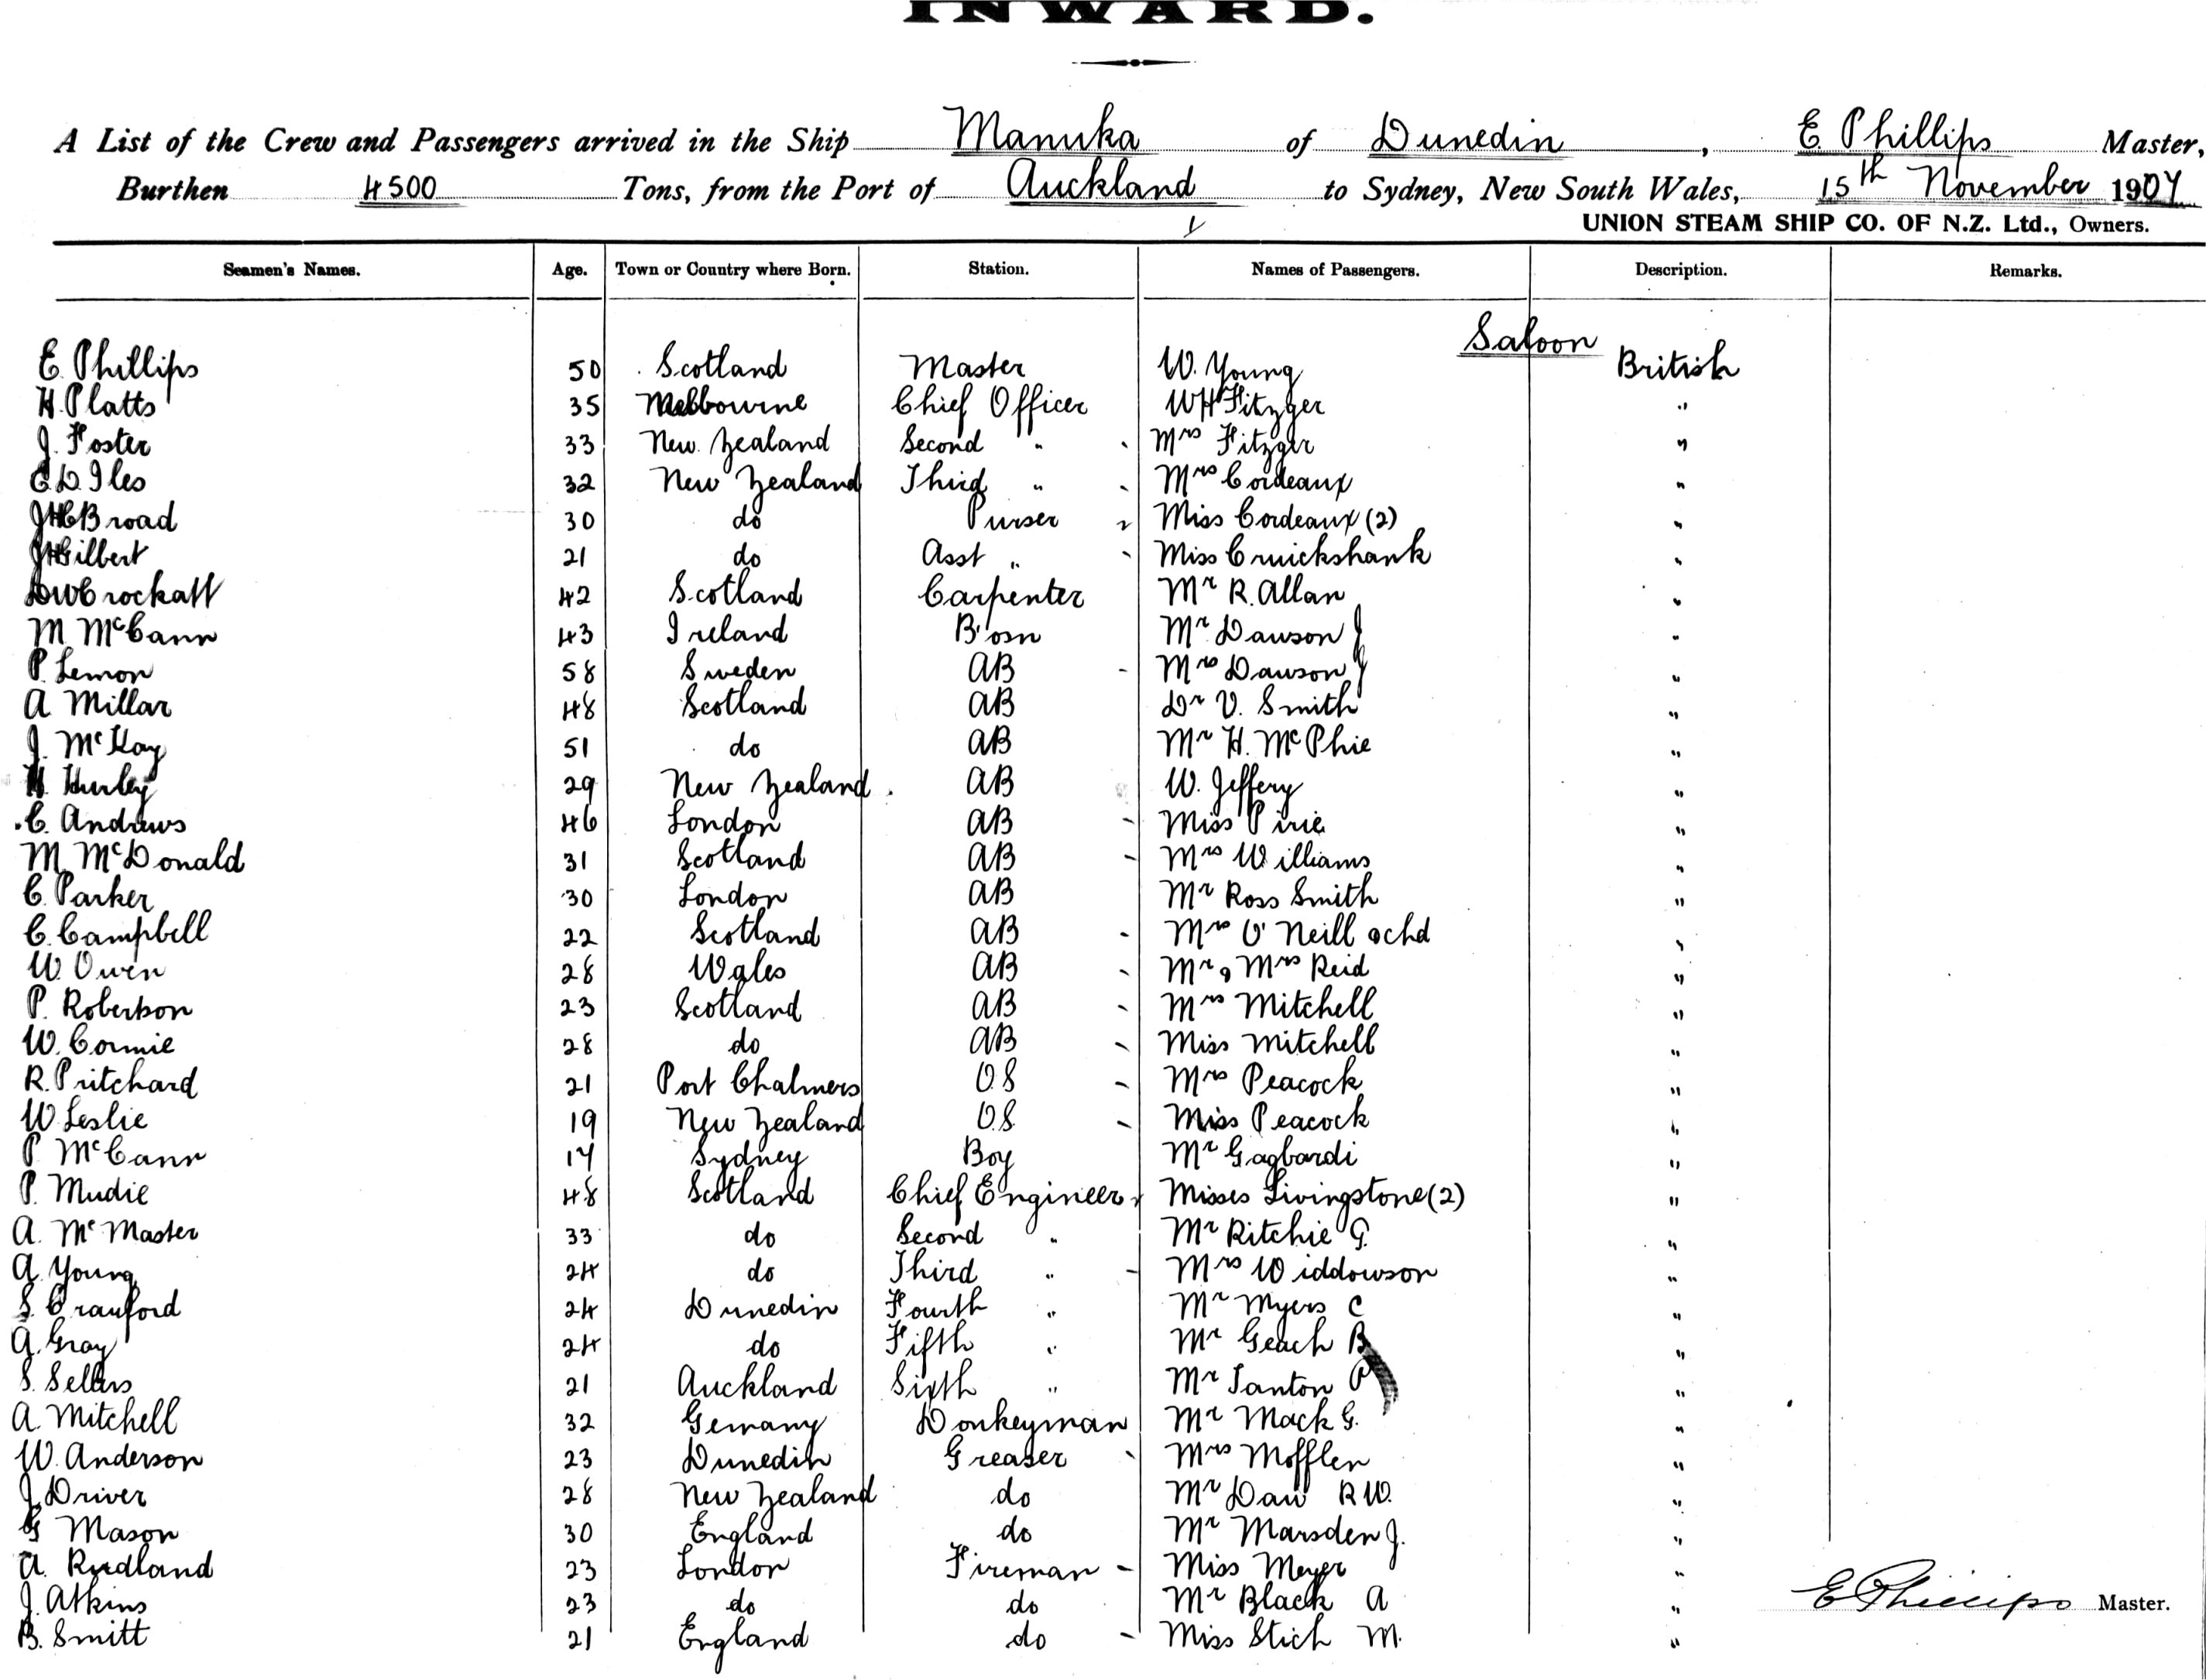 INWARD.
A List of the Crew and Passengers arrived in the Ship Manuka of Dunedin, E Phillips Master,
Burthen 4500 Tons, from the Port of Auckland to Sydney, New South Wales, 15th November 1907
UNION STEAM SHIP CO. OF N.Z. Ltd., Owners.
Seamen's Names. Age. Town or Country where Born. Station. Names of Passengers. Description. Remarks.
Saloon
E. Phillips 50 Scotland Master W. Young British
H. Platts 35 Melbourne Chief Officer W H Fitzger "
J. Foster 33 New Zealand Second " Mrs Fitzger "
C. D. Iles 32 New Zealand Third " Mrs Cordeaux "
J H C Broad 30 do Purser Miss Cordeaux (2) "
J H Gilbert 21 do Asst " Miss Cruickshank "
D W Crockatt 42 Scotland Carpenter Mr R. Allan "
M McCann 43 Ireland B'osn Mr Dawson J "
P. Lemon 58 Sweden AB Mrs Dawson J "
A Millar 48 Scotland AB Dr V. Smith "
J. McKay 51 do AB Mr H. McPhie "
H. Hurley 29 New Zealand AB W. Jeffery "
C. Andrews 46 London AB Miss Pirie "
M McDonald 31 Scotland AB Mrs Williams "
C. Parker 30 London AB Mr Ross Smith "
C. Campbell 22 Scotland AB Mrs O'Neill & chd "
W. Owen 28 Wales AB Mr & Mrs Reid "
P. Robertson 23 Scotland AB Mrs Mitchell "
W. Cormie 28 do AB Miss Mitchell "
R. Pritchard 21 Port Chalmers O.S Mrs Peacock "
W Leslie 19 New Zealand O.S. Miss Peacock "
P McCann 17 Sydney Boy Mr Gagbardi "
P. Mudie 48 Scotland Chief Engineer Misses Livingstone (2) "
A. McMaster 33 do Second " Mr Ritchie G. "
A. Young 24 do Third " Mrs Widdowson "
S. Crauford 24 Dunedin Fourth " Mr Myers C "
A. Gray 24 do Fifth " Mr Geach B "
S. Sellers 21 Auckland Sixth " Mr Tanton P "
A. Mitchell 32 Gemany Donkeyman Mr Mack G. "
W. Anderson 23 Dunedin Greaser Mrs Mofflen "
J. Driver 28 New Zealand do Mr Daw R W. "
G Mason 30 England do Mr Marsden J. "
A. Rudland 23 London Fireman Miss Meyer "
J. Atkins 23 do do Mr Black A "
E Phillips Master.
B. Smitt 21 England do Miss Stich M. "